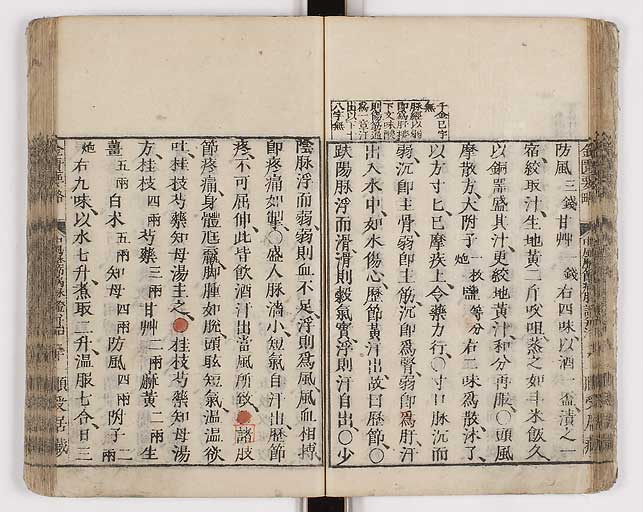 防風三錢甘艸一錢右四味以酒一盃漬之一
宿絞取汁生地黃二斤㕮咀蒸之如斗米飯久
以銅器盛其汁更絞地黃汁和分再服○頭風
摩散方大附子一枚炮鹽等分右二味爲散沐了
以方寸匕已摩疾上令藥力行○寸口脉沉而
弱沉卽主骨弱卽主筋沉卽爲腎弱卽爲肝汗
出入水中如水傷心歷節黃汗出故曰歷節○
趺陽脉浮而滑滑則穀氣實浮則汗自出○少
千金已字
無
脉經以弱
卽爲肝接
下文味酸
則傷筋過
爲一章汗
出以下十
八字無
陰脉浮而弱弱則血不足浮則爲風風血相搏
卽疼痛如掣○盛人脉濇小短氣自汗出歷節
疼不可屈伸此皆飲酒汗出當風所致○諸肢
節疼痛身體尫羸脚腫如脫頭眩短氣溫溫欲
吐桂枝芍藥知母湯主之○桂枝芍藥知母湯
方桂枝四兩芍藥三兩甘艸二兩麻黃二兩生
薑五兩白朮五兩知母四兩防風四兩附子二兩
炮右九味以水七升煮取二升溫服七合日三